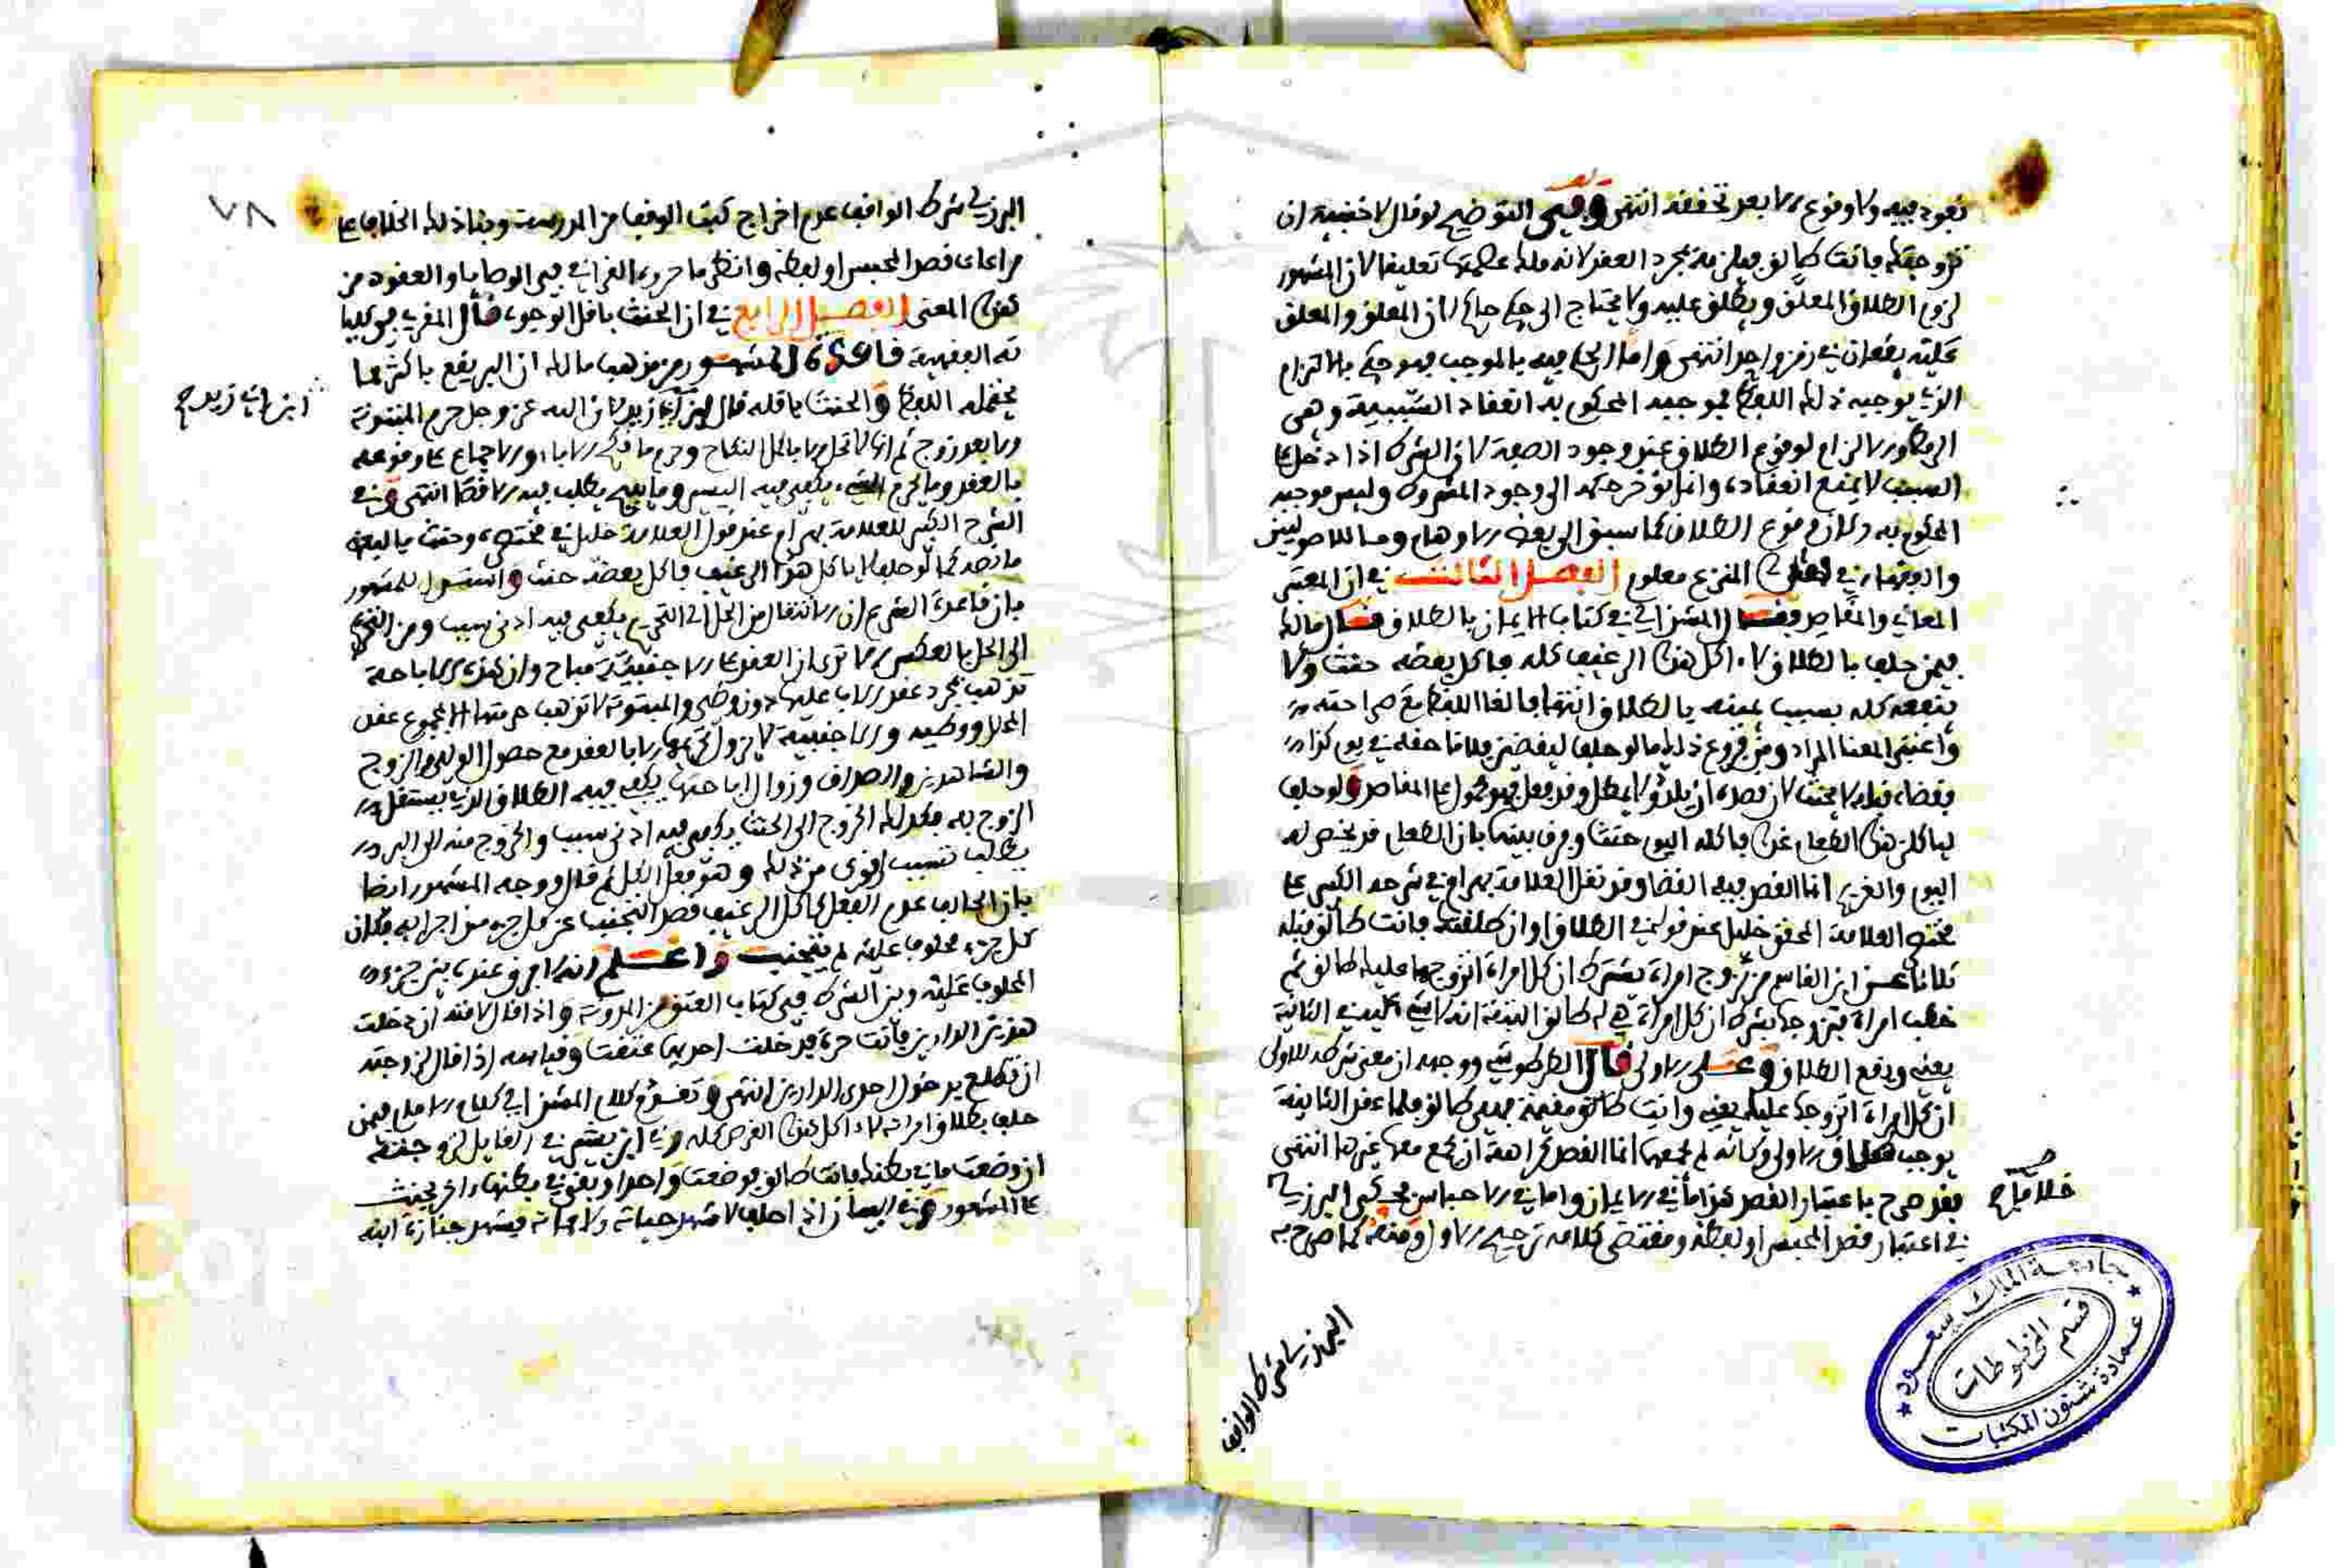 نفوذ فيه ولا وقوع الا بعد تحققه انتهى وفي التوضيح لو قال لاجنبية ان
تزوجتك فانت طالق فيلزمه بمجرد العقد لانه ملك عصمتها تعليقا لان المشهور
لزوم الطلاق المعلق ويطلق عليه ولا يحتاج الى حكم حاكم لان المعلق والمعلق
عليه يقعان في زمن واحد انتهى واما الحكم فيه بالموجب فهو حكم بالالتزام
الذي يوجبه ذلك اللفظ فموجبه المحكوم به انعقاد السببية وهي
لوقوع الطلاق عند وجود الصفة لان الشرط اذا دخل على
السبب لا يمنع انعقاده وانما يؤخر حكمه الى وجود المشروط وليس موجبه
المحكوم به وقوع الطلاق كما سبق الى بعض الاوهام وما للاصوليين
والفقهاء في المنزع معلوم الفصل الثالث في ان المعتبر
المعاني والمقاصد وقال المشذالي في كتاب الايمان بالطلاق قال مالك
فيمن حلف بالطلاق لا اكل هذا الرغيف كله فاكل بعضه حنث ولا
ينفعه كله بسبب يمينه بالطلاق انتهى فالغا اللفظ مع صراحته
واعتبر المعنا المراد ومن فروع ذلك ما لو حلف ليقضين فلانا حقه في يوم كذا
فقضاه قبله لا يحنث لان قصده ان يلدد ولا يمطل وقد فعل فهو محمول على المقاصد ولو حلف
لياكلن هذا الطعام غدا فاكله اليوم حنث وفرق بينهما بان الطعام قد يخص به
اليوم والغريم انما القصد فيه القضا وقد نقل العلامة بهرام في شرحه الكبير على
مختصر العلامة المحقق خليل عند قوله في الطلاق او ان طلقتك فانت طالق قبله
ثلاثا عن ابن القاسم من تزوج امراة بشرط ان كل امراة اتزوجها عليك طالق ثم
خطب امراة فتزوجها بشرط ان كل امراة هي له طالق البتة انه لا شيء عليه في الثانية
يعني ويقع الطلاق على الاولى قال الطرطوشي ووجهه ان معنى شرطه للاولى
ان كل امراة اتزوجها عليك يعني وانت طالق مقيمة فهي طالق فلما عقد الثانية
يوجب طلاق الاولى وكانه لم يجمعهما انما القصد كراهة ان يجمع معها غيرها انتهى
فقد صرح باعتبار القصد هذا في الايمان واما في الاحباس فحكى البرزلي
خلافا صح
في اعتبار قصد المحبس او لفظه ومقتضى كلامه ترجيح الاول ومنه كما صرح به
البرزلي شرط الواقف
٧٨
البرزلي شرط الواقف عدم اخراج كتب الوقف من المدرسة وبنا ذلك الخلاف على
مراعاة قصد المحبس او لفظه وانظر ما حرره القرافي في الوصايا والعقود من
هذا المعنى الفصل الرابع في ان الحنث باقل الوجوه قال المقري في كليا
ته الفقهية قاعدة المشهور من مذهب مالك ان البر يقع باكثر ما
يحتمله اللفظ والحنث باقله قال ابن ابي زيد لان الله عز وجل حرم المبتوتة
ابن ابي زيد صح
الا بعد زوج ثم انها لا تحل الا باكمل النكاح وحرم ما نكح الاباء والاجماع على وقوعه
بالعقد وما يحرم الشيء يكفي فيه اليسير وما يبيح يطلب فيه الاقصا انتهى وفي
الشرح الكبير للعلامة بهرام عند قول العلامة خليل في مختصره وحنث بالبعض
ما نصه كما لو حلف لا ياكل هذا الرغيف فاكل بعضه حنث واستدل للمشهور
بان قاعدة الشرع ان الانتقال من الحل الى التحريم يكفي فيه ادنى سبب ومن التحريم
الى الحل بالعكس الا ترى ان العقد على الاجنبية مباح وان هذه الاباحة
تذهب بمجرد عقد الاب عليها دون وطئ والمبتوتة لا تذهب حرمتها الا بمجموع عقد
المحلل ووطئه والاجنبية لا يزول تحريمها الا بالعقد مع حصول الولي والزوج
والشاهدين والصداق وزوال اباحتها يكفي فيه الطلاق الذي يستقل
الزوج به فكذلك الخروج الى الحنث يكفي فيه ادنى سبب والخروج منه الى البر
يطلب بسبب اقوى من ذلك وهو فعل الكل ثم قال ووجه المشهور ايضا
بان الحالف عدم الفعل كاكل الرغيف قصد التجنب عن كل جزء من اجزايه فكان
كل جزء محلوف عليه لم يتجنب واعلم انه لا فرق عنده بين جزء
المحلوف عليه وبين الشرط ففي كتاب العتق من المدونة واذا قال لامته ان دخلت
هذين الدارين فانت حرة فدخلت احديهما عتقت وقياسه اذا قال لزوجته
ان تطلع بدخول احدى الدارين انتهى وتقدم كلام المشذالي في كلام الامام فيمن
حلف بطلاق امراته لا اكل هذا القرص كله وفي ابن بشير في القايل لزوجته
ان وضعت ما في بطنك فانت طالق فوضعت واحدا وبقي في بطنها اخر يحنث
على المشهور وفي البيان اذا حلف لا شهد حياته ولا مماته فيشهد جنازة ابنه
جامعة الملك سعود
عمادة شئون المكتبات
قسم المخطوطات